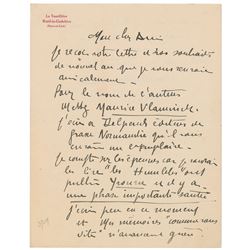 La Tourillière
Rueil-la-Gadelière
(Eure-et-Loir)
Mon cher Ami
Je reçois votre lettre et vos souhaits
de nouvel an que je vous envoie
amicalement.
Pour le nom de l'auteur
Mettez Maurice Vlaminck.
J'écris à Delpeuch éditeur de
grave Normandie qu'il vous
envoie un exemplaire.
Je compte sur les épreuves car je voudrais
les lire "les Humbles" ont
publié et il y a
une phase importante sautée
J'écris peu en ce moment
et Mes mémoires, comme vous
dites n'avancent guère.